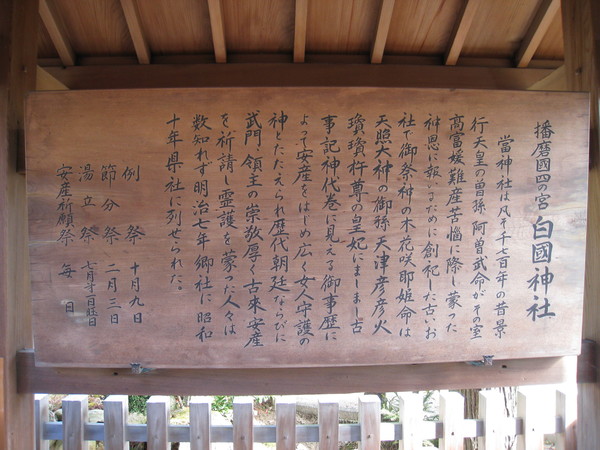 播磨國四の宮 白國神社
當神社は凡そ千七百年の昔景
行天皇の曽孫阿曽武命がその室
高富媛難産苦惱に際し蒙った
神恩に報いるために創祀した古いお
社で御祭神の木花咲耶姫命は
天照大神の御孫天津彦彦火
瓊瓊杵尊の皇妃にましまし古
事記神代巻に見える御事歴に
よって安産をはじめ広く女人守護の
神とたたえられ歴代朝廷ならびに
武門・領主の崇敬厚く古来安産
を祈請し霊護を蒙った人々は
数知れず明治七年郷社に昭和
十年県社に列せられた。
例祭 十月九日
節分祭 二月三日
湯立祭
安産祈願祭 毎日